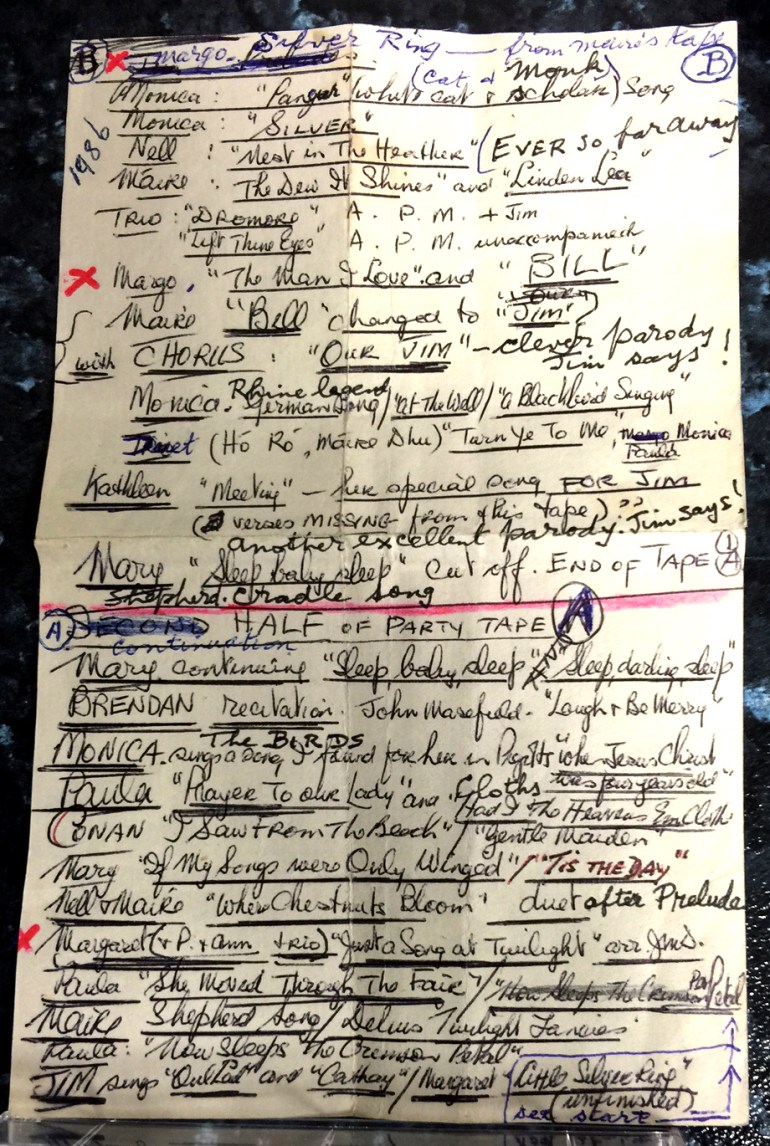 B X Margo - Silver Ring — from Maire's tape B
(Cat & Monk)
Monica : "Pangur" (white cat & scholar) Song
1986
Monica : "SILVER"
Nell : "Nest in The Heather" (EVER SO far away
Maire : The Dew It Shines" and "Linden Lea"
TRIO : "DROMORE" A. P. M. + Jim
"Lift Thine Eyes" A. P. M. unaccompanied
X Margo, "The Man I Love" and "BILL"
Maire "Bill" changed to "Jim")
with CHORUS : "OUR JIM" - clever parody
Jim says!
Rhine legend
Monica. German Song / "At The Well / "a Blackbird Singing"
(Hó Ró, Máire Dhu) "Turn Ye To Me, Monica
Paula
Kathleen "Meeting" - her special song FOR JIM
(2 verses MISSING from this tape)"
another excellent parody. Jim says!
Mary "Sleep baby sleep" Cut off. END OF TAPE 1 A
Shepherd. Cradle song
A SECOND HALF OF PARTY TAPE A
Continuation
Mary continuing "Sleep, baby, sleep" Sleep, darling, sleep"
BRENDAN recitation. John Masefield - "Laugh & Be Merry"
The BIRDS
MONICA. sings a song I found for her in "when Jesus Christ
was four years old"
Paula "Prayer To Our Lady" and Cloths
Had I The Heavens Em Cloth
CONAN "I Saw From The Beach" / "Gentle Maiden"
Mary "If My Songs were Only Winged" / "'TIS THE DAY"
Nell & Maire "When Chestnuts Bloom" duet after Prelude
X Margaret (+ P. + ann trio) "Just a Song at Twilight" arr JMD.
Paula "She Moved Through The Fair" / "Now Sleeps The Crimson Petal
Maire Shepherd Song / Delius Twilight Fancies
Paula : "Now Sleeps The Crimson Petal"
JIM sings "and "Cathay" / Margaret "Little Silver Ring"
(unfinished)
see start